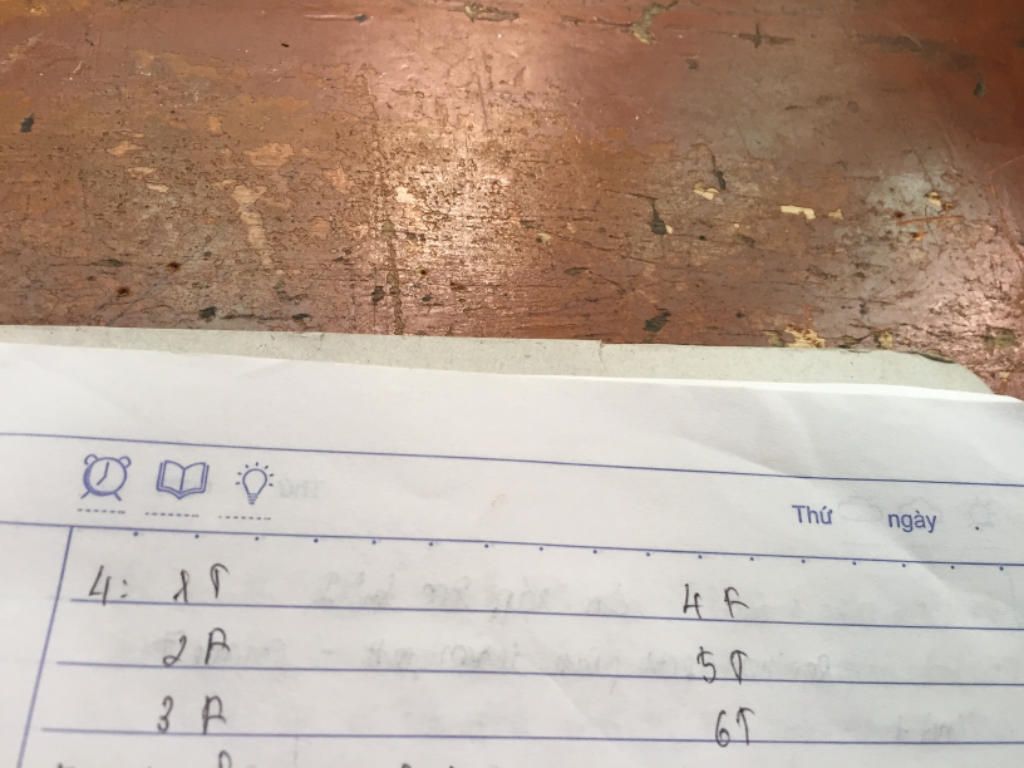 Thứ ngày .
4: 1 T 4 F
2 F 5 T
3 F 6 T